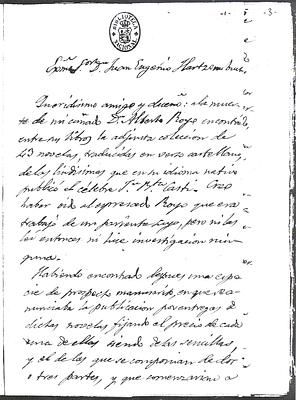 -3-
BIBLIOTECA NACIONAL
Exmo. Sor. D. Juan Eugenio Hartzenbusch.
Queridísimo amigo y dueño: a la muer-
te de mi cuñado Dn. Alberto Royo encontré
entre sus libros la adjunta coleccion de
43 novelas, traducidas en verso castellano
de las lindisimas que en su idioma nativo
publicó el célebre Casti. Creo
haber oido al expresado Royo que era
trabajo de un pariente suyo, pero ni las
leí entonces ni hice investigacion nin-
guna.
Habiendo encontrado despues una espe-
cie de prospecto manuscrito, en que se a-
nunciaba la publicacion por entregas de
dichas novelas, fijando el precio de cada
una de ellas siendo de las sencillas,
y el de las que se componian de dos
o tres partes, y que comenzarian a